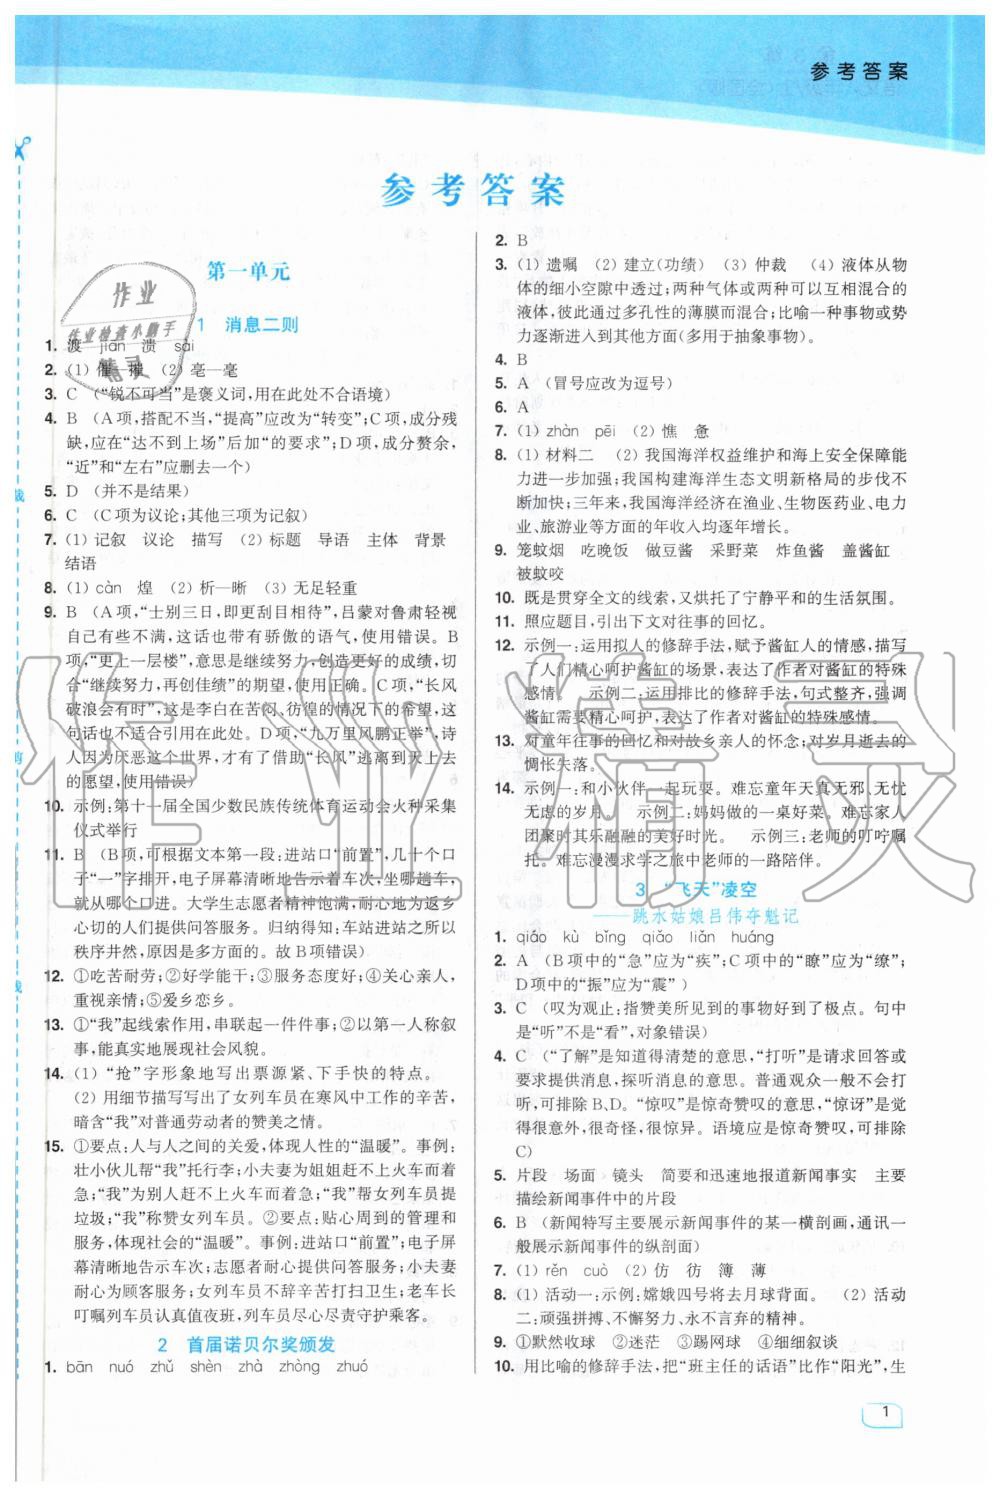 参考答案
参考答案
第一单元
1 消息二则
1. 渡 jiān 溃 sài
2. (1) 催—摧 (2) 亳—毫
3. C (“锐不可当”是褒义词,用在此处不合语境)
4. B (A项,搭配不当,“提高”应改为“转变”;C项,成分残
缺,应在“达不到上场”后加“的要求”;D项,成分赘余,
“近”和“左右”应删去一个)
5. D (并不是结果)
6. C (C项为议论;其他三项为记叙)
7. (1) 记叙 议论 描写 (2) 标题 导语 主体 背景
结语
8. (1) càn 煌 (2) 析—晰 (3) 无足轻重
9. B (A项,“士别三日,即更刮目相待”,吕蒙对鲁肃轻视
自己有些不满,这话也带有骄傲的语气,使用错误。B
项,“更上一层楼”,意思是继续努力,创造更好的成绩,切
合“继续努力,再创佳绩”的期望,使用正确。C项,“长风
破浪会有时”,这是李白在苦闷、彷徨的情况下的书怀,这
句话也不适合引用在此处。D项,“九万里风鹏正举”,诗
人因为厌恶这个世界,才有了借助“长风”逃离到天上去
的愿望,使用错误)
10. 示例:第十一届全国少数民族传统体育运动会火种采集
仪式举行
11. B (B项,可根据文本第一段:进站口“前置”,几十个口
子“一”字排开,电子屏幕清晰地告示着车次,坐哪趟车,
就从哪个口进。大学生志愿者精神饱满,耐心地为返乡
心切的人们提供问答服务。归纳得知:车站进站之所以
秩序井然,原因是多方面的。故B项错误)
12. ①吃苦耐劳;②好学能干;③服务态度好;④关心亲人,
重视亲情;⑤爱乡恋乡。
13. ①“我”起线索作用,串联起一件件事;②以第一人称叙
事,能真实地展现社会风貌。
14. (1) “抢”字形象地写出票源紧、下手快的特点。
(2) 用细节描写写出了女列车员在寒风中工作的辛苦,
暗含“我”对普通劳动者的赞美之情。
15. ①要点:人与人之间的关爱,体现人性的“温暖”。事例:
壮小伙儿帮“我”托行李;小夫妻为姐姐赶不上火车而着
急;“我”为别人赶不上火车而着急;“我”帮女列车员提
垃圾;“我”称赞女列车员。②要点:贴心周到的管理和
服务,体现社会的“温暖”。事例:进站口“前置”;电子屏
幕清晰告示车次;志愿者耐心提供问答服务;小夫妻
耐心为顾客服务;女列车员不辞辛苦打扫卫生;老车长
叮嘱列车员认真值夜班,列车员尽心尽责守护乘客。
2 首届诺贝尔奖颁发
1. bān nuó zhǔ shèn zhà zhòng zhuó
2. B
3. (1) 遗嘱 (2) 建立(功绩) (3) 仲裁 (4) 液体从物
体的细小空隙中透过;两种气体或两种可以互相混合的
液体,彼此通过多孔性的薄膜而混合;比喻一种事物或势
力逐渐进入到其他方面(多用于抽象事物)。
4. B
5. A (冒号应改为逗号)
6. A
7. (1) zhàn pēi (2) 憔 惫
8. (1) 材料二 (2) 我国海洋权益维护和海上安全保障能
力进一步加强;我国构建海洋生态文明新格局的步伐不
断加快;三年来,我国海洋经济在渔业、生物医药业、电力
业、旅游业等方面的年收入均逐年增长。
9. 笼蚊烟 吃晚饭 做豆酱 采野菜 炸鱼酱 盖酱缸
被蚊咬
10. 既是贯穿全文的线索,又烘托了宁静平和的生活氛围。
11. 照应题目,引出下文对往事的回忆。
12. 示例一:运用拟人的修辞手法,赋予酱缸人的情感,描写
了人们精心呵护酱缸的场景,表达了作者对酱缸的特殊
感情。 示例二:运用排比的修辞手法,句式整齐,强调
酱缸需要精心呵护,表达了作者对酱缸的特殊感情。
13. 对童年往事的回忆和对故乡亲人的怀念;对岁月逝去的
惆怅失落。
14. 示例一:和小伙伴一起玩耍。难忘童年天真无邪、无忧
无虑的岁月。 示例二:妈妈做的一桌好菜。难忘家人
团聚时其乐融融的美好时光。 示例三:老师的叮咛嘱
托。难忘漫漫求学之旅中老师的一路陪伴。
3 “飞天”凌空
——跳水姑娘吕伟夺魁记
1. qiáo kù bǐng qiǎo liǎn huáng
2. A (B项中的“急”应为“疾”;C项中的“瞭”应为“缭”;
D项中的“振”应为“震”)
3. C (叹为观止:指赞美所见到的事物好到了极点。句中
是“听”不是“看”,对象错误)
4. C (“了解”是知道得清楚的意思,“打听”是请求回答或
要求提供消息,探听消息的意思。普通观众一般不会打
听,可排除B、D。“惊叹”是惊奇赞叹的意思,“惊讶”是觉
得很意外,很奇怪,很惊异。语境应是惊奇赞叹,可排除
C)
5. 片段 场面 镜头 简要和迅速地报道新闻事实 主要
描绘新闻事件中的片段
6. B (新闻特写主要展示新闻事件的某一横剖面,通讯一
般展示新闻事件的纵剖面)
7. (1) rěn cuò (2) 仿 彷 簿 薄
8. (1) 活动一:示例:嫦娥四号将去月球背面。 (2) 活动
二:顽强拼搏、不懈努力、永不言弃的精神。
9. ①默然收泪 ②迷茫 ③踢网球 ④细细叙谈
10. 用比喻的修辞手法,把“班主任的话语”比作“阳光”,生
1
裁
剪
裁
作业
作业检查小助手
精灵
作业精灵